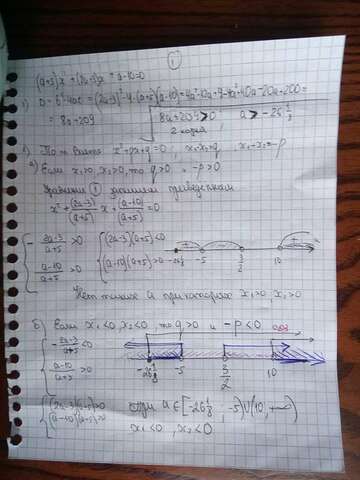 1
(a+5)x² + (2a-3)x + a-10=0
1) D = b²-4ac = (2a-3)²-4·(a+5)(a-10) = 4a²-12a+9-4a²+40a-20a+200=
= 8a+209
8a+209>0 a>-26 1/8
2 корня
x²+px+q=0, x₁·x₂=q, x₁+x₂=-p
а) Если x₁>0, x₂>0, то q>0, -p>0
Уравнение ① запишем приведенным
x² + (2a-3)/(a+5) x + (a-10)/(a+5) =0
{ -(2a-3)/(a+5) >0 { (2a-3)(a+5)<0
(a-10)/(a+5) >0 (a-10)(a+5)>0 -26 1/8 -5 3/2 10
Нет таких a при которых x₁>0, x₂>0
б) Если x₁<0, x₂<0, то q>0 и -p<0
{ -(2a-3)/(a+5) <0
(a-10)/(a+5) >0 -26 1/8 -5 3/2 10
{ (2a-3)(a+5)>0 при a∈[-26 1/8; -5)∪(10; +∞)
(a-10)(a+5)>0 x₁<0, x₂<0